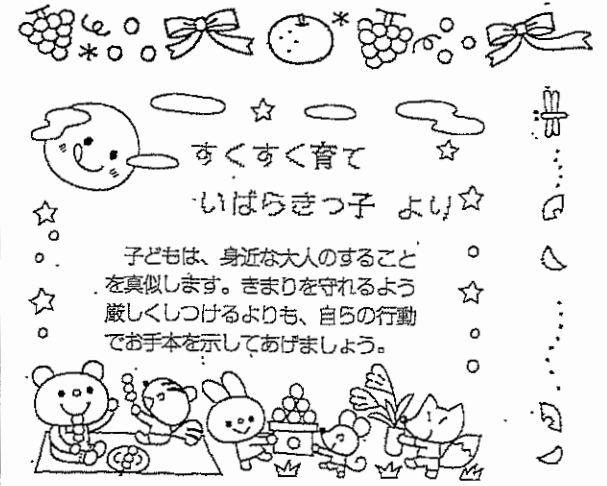 すくすく育て
いばらきっ子 より
子どもは、身近な大人のすること
を真似します。きまりを守れるよう
厳しくしつけるよりも、自らの行動
でお手本を示してあげましょう。